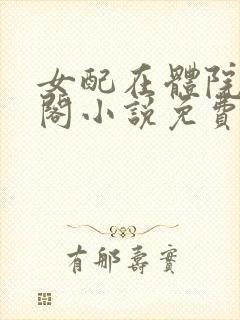 女配在體院
閣小說免費
有那壽實